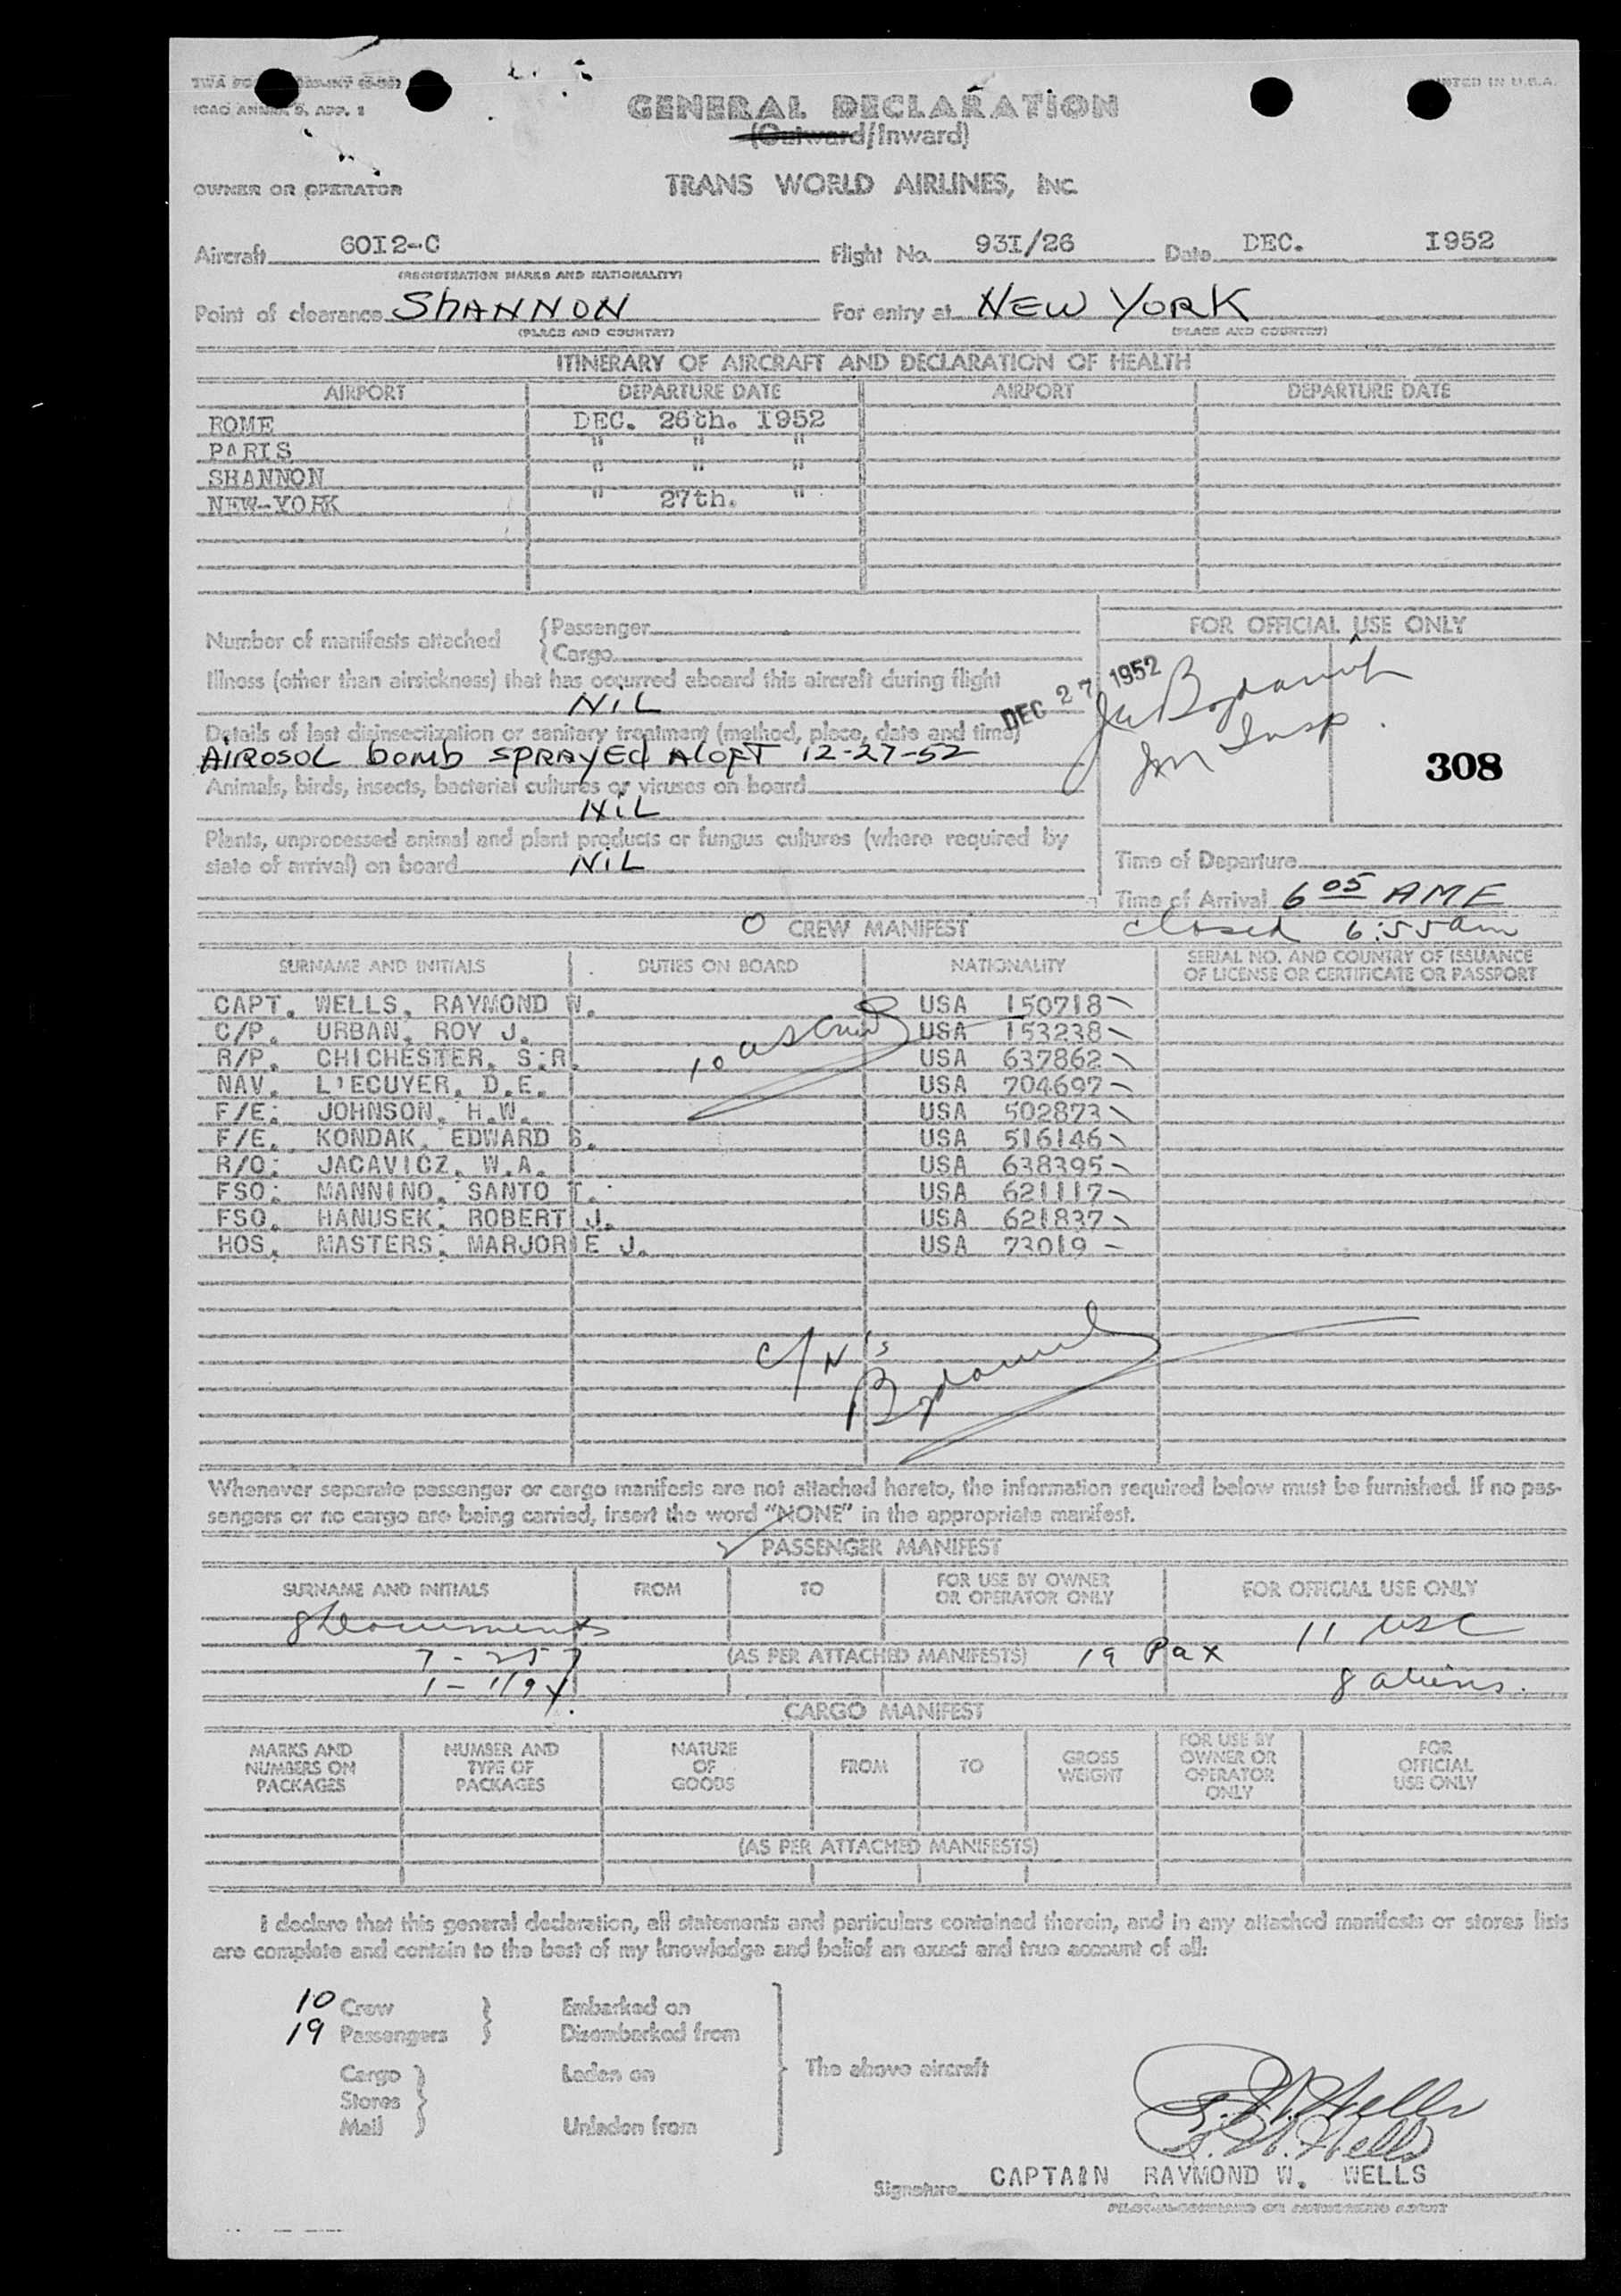 ICAO ANNEX 9, APP. 1
PRINTED IN U.S.A.
GENERAL DECLARATION
(Outward/Inward)
OWNER OR OPERATOR TRANS WORLD AIRLINES, INC.
Aircraft 60I2-C Flight No. 93I/26 Date DEC. I952
(REGISTRATION MARKS AND NATIONALITY)
Point of clearance ShANNON For entry at NEW YORK
(PLACE AND COUNTRY) (PLACE AND COUNTRY)
ITINERARY OF AIRCRAFT AND DECLARATION OF HEALTH
AIRPORT DEPARTURE DATE AIRPORT DEPARTURE DATE
ROME DEC. 26th. I952
PARIS " " "
SHANNON " " "
NEW-YORK " 27th. "
Number of manifests attached {Passenger
{Cargo
FOR OFFICIAL USE ONLY
Illness (other than airsickness) that has occurred aboard this aircraft during flight
NiL
DEC 27 1952
Details of last disinsectization or sanitary treatment (method, place, date and time)
AiROSOL bomb SPRAYEd ALOFT 12-27-52
Im Insp.
308
Animals, birds, insects, bacterial cultures or viruses on board
NiL
Plants, unprocessed animal and plant products or fungus cultures (where required by
state of arrival) on board NiL
Time of Departure
Time of Arrival 6 05 AME
O CREW MANIFEST closed 6:55am
SURNAME AND INITIALS DUTIES ON BOARD NATIONALITY SERIAL NO. AND COUNTRY OF ISSUANCE
OF LICENSE OR CERTIFICATE OR PASSPORT
CAPT. WELLS, RAYMOND W. USA 150718
C/P. URBAN, ROY J. USA 153238
R/P. CHICHESTER, S.R. 10 USA 637862
NAV. L'ECUYER, D.E. USA 704697
F/E. JOHNSON, H.W. USA 502873
F/E. KONDAK, EDWARD S. USA 516146
R/O. JACAVICZ, W.A. USA 638395
FSO. MANNINO, SANTO T. USA 621117
FSO. HANUSEK, ROBERT J. USA 621837
HOS. MASTERS, MARJORIE J. USA 73019
C/N's
Whenever separate passenger or cargo manifests are not attached hereto, the information required below must be furnished. If no pas-
sengers or no cargo are being carried, insert the word "NONE" in the appropriate manifest.
PASSENGER MANIFEST
SURNAME AND INITIALS FROM TO FOR USE BY OWNER
OR OPERATOR ONLY FOR OFFICIAL USE ONLY
8 Documents 11 USC
7 - 257 (AS PER ATTACHED MANIFESTS) 19 Pax
8 aliens.
CARGO MANIFEST
MARKS AND
NUMBERS ON
PACKAGES
NUMBER AND
TYPE OF
PACKAGES
NATURE
OF
GOODS
FROM
TO
GROSS
WEIGHT
FOR USE BY
OWNER OR
OPERATOR
ONLY
FOR
OFFICIAL
USE ONLY
(AS PER ATTACHED MANIFESTS)
I declare that this general declaration, all statements and particulars contained therein, and in any attached manifests or stores lists
are complete and contain to the best of my knowledge and belief an exact and true account of all:
10 Crew Embarked on
19 Passengers Disembarked from
Cargo Laden on The above aircraft
Stores
Mail Unladen from
R. W. Wells
R. W. Wells
Signature CAPTAIN RAYMOND W. WELLS
PILOT-IN-COMMAND OR AUTHORIZED AGENT